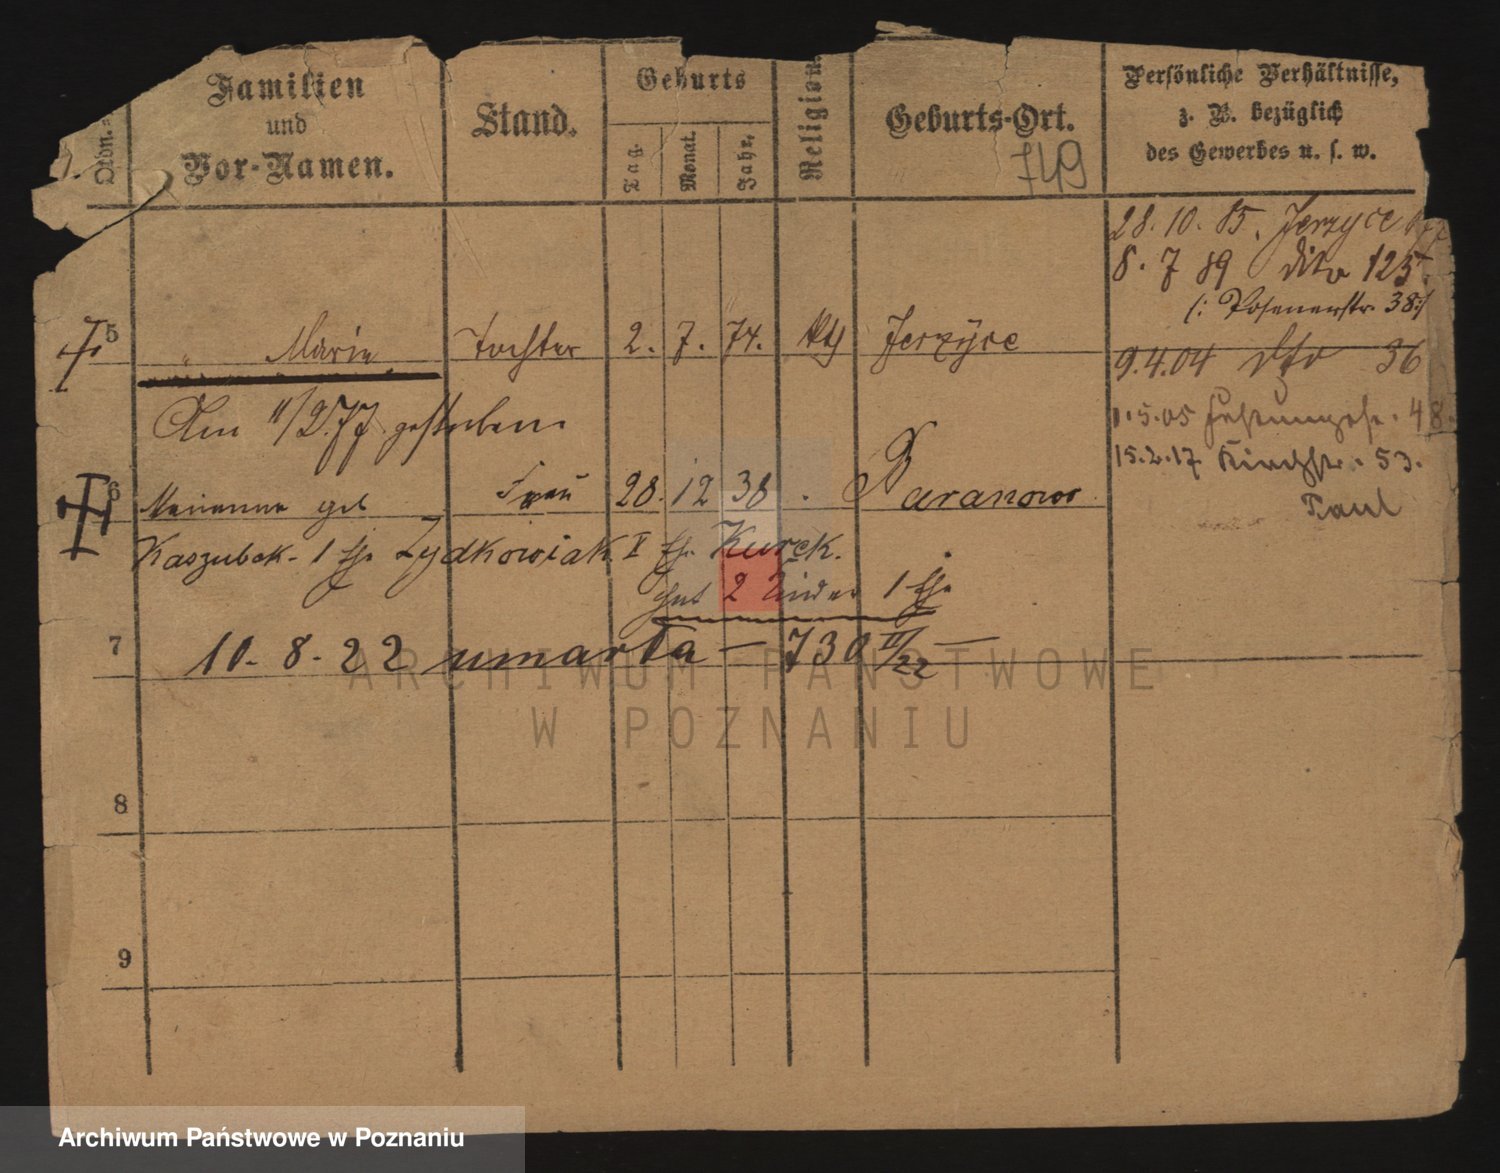 Ordn.=
Familien
und
Vor-Namen.
Stand.
Geburts
Tag. Monat. Jahr.
Religion.
Geburts-Ort.
749
Persönliche Verhältnisse,
z. B. bezüglich
des Gewerbes u. s. w.
28. 10. 85. Jerzyce
8. 7 89 dito 125.
(: Posenerstr. 38:)
5 " Marie Tochter 2. 7. 74. kth Jerzyce
9.4.04 dto 36
Am 11/2.77 gestorben.
1.5.05 48.
15.2.17 Kirchstr. 53.
Paul
6 Marianna geb Frau 28. 12 38 . Baranowo
Kaszubek. 1 Eh. Zydkowiak. II Eh. Kurek.
hat 2 Kinder 1 Ehe
7 10. 8. 22 umarła — 730 III/22 —
8
9
ARCHIWUM PAŃSTWOWE
W POZNANIU
Archiwum Państwowe w Poznaniu